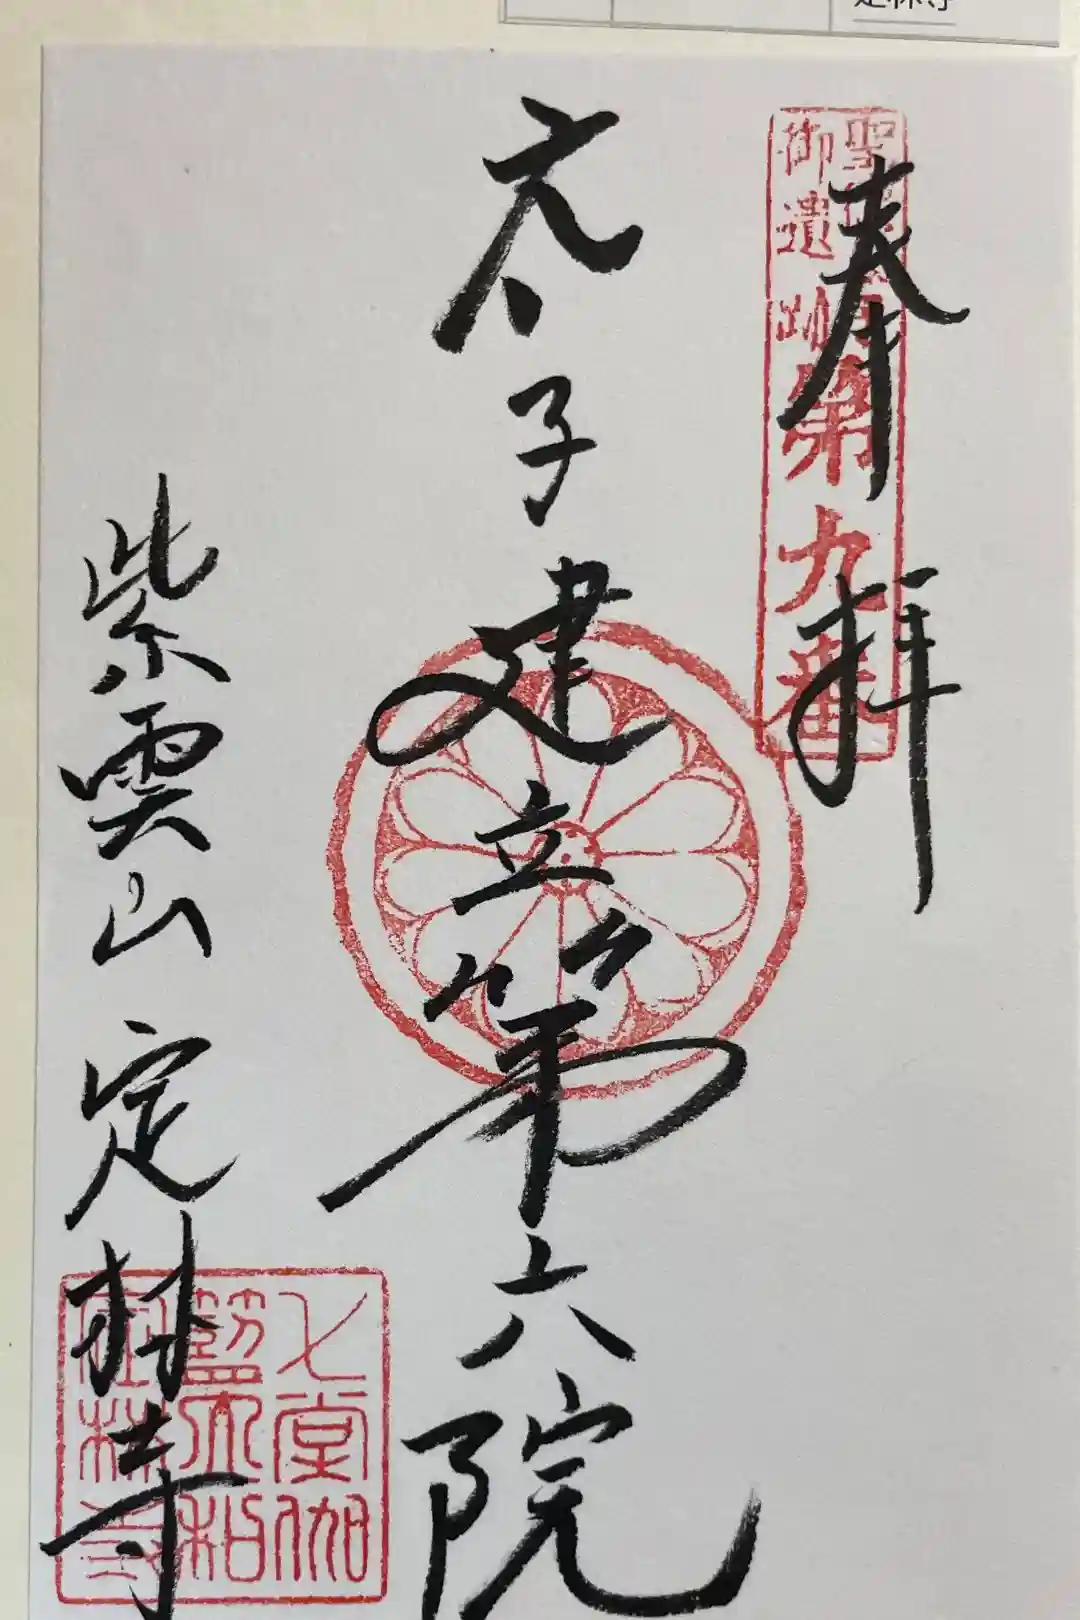 定林寺
奉拝
聖徳太子
御遺跡
第九番
太子建立第六院
紫雲山 定林寺
七堂伽
藍大和
定林寺